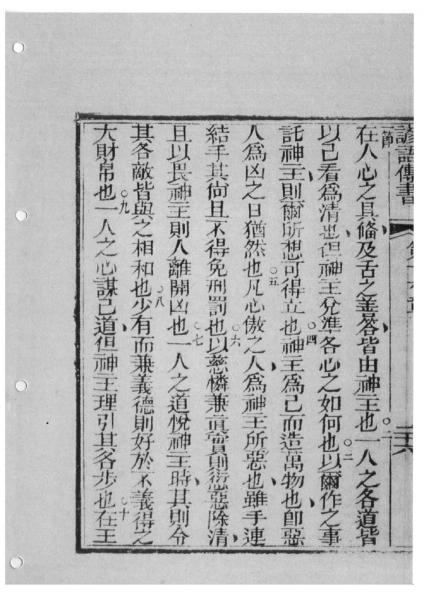 諺語傳書
節在人心之具備及舌之荅皆由神主也○二一人之各道皆
以己看為清也但神主兌準各心之如何也○三以爾作之事
託神主則爾所想可得立也○四神主為己而造萬物也即惡
人為凶之日猶然也○五凡心傲之人為神主所惡也雖手連
結手其尚且不得免刑罰也○六以慈憐兼真實則愆惡除清
且以畏神主則人離開凶也○七一人之道悅神主時其則分
其各敵皆與之相和也○八少有而兼義德則好於不義得之
大財帛也○九一人之心謀己道但神主理引其各步也○十在王